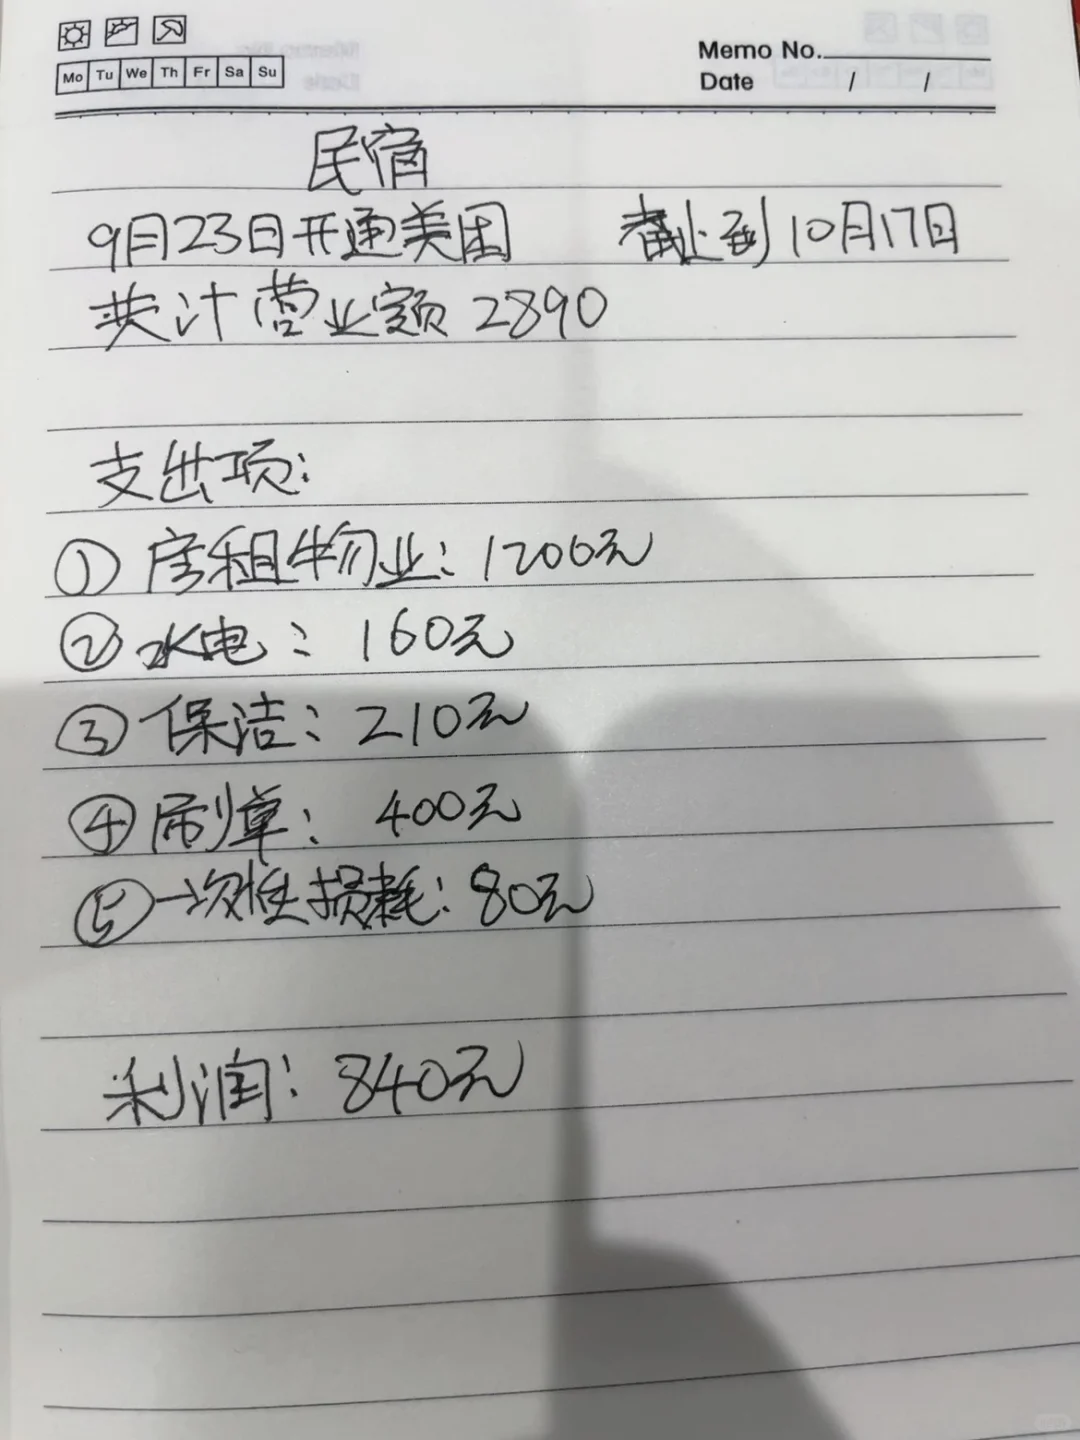 Mo Tu We Th Fr Sa Su
Memo No.
Date / /
民宿
9月23日开通美团 截止到10月17日
共计营业额 2890
支出项:
① 房租物业:1200元
② 水电:160元
③ 保洁:210元
④ 刷单:400元
⑤ 一次性损耗:80元
利润:840元